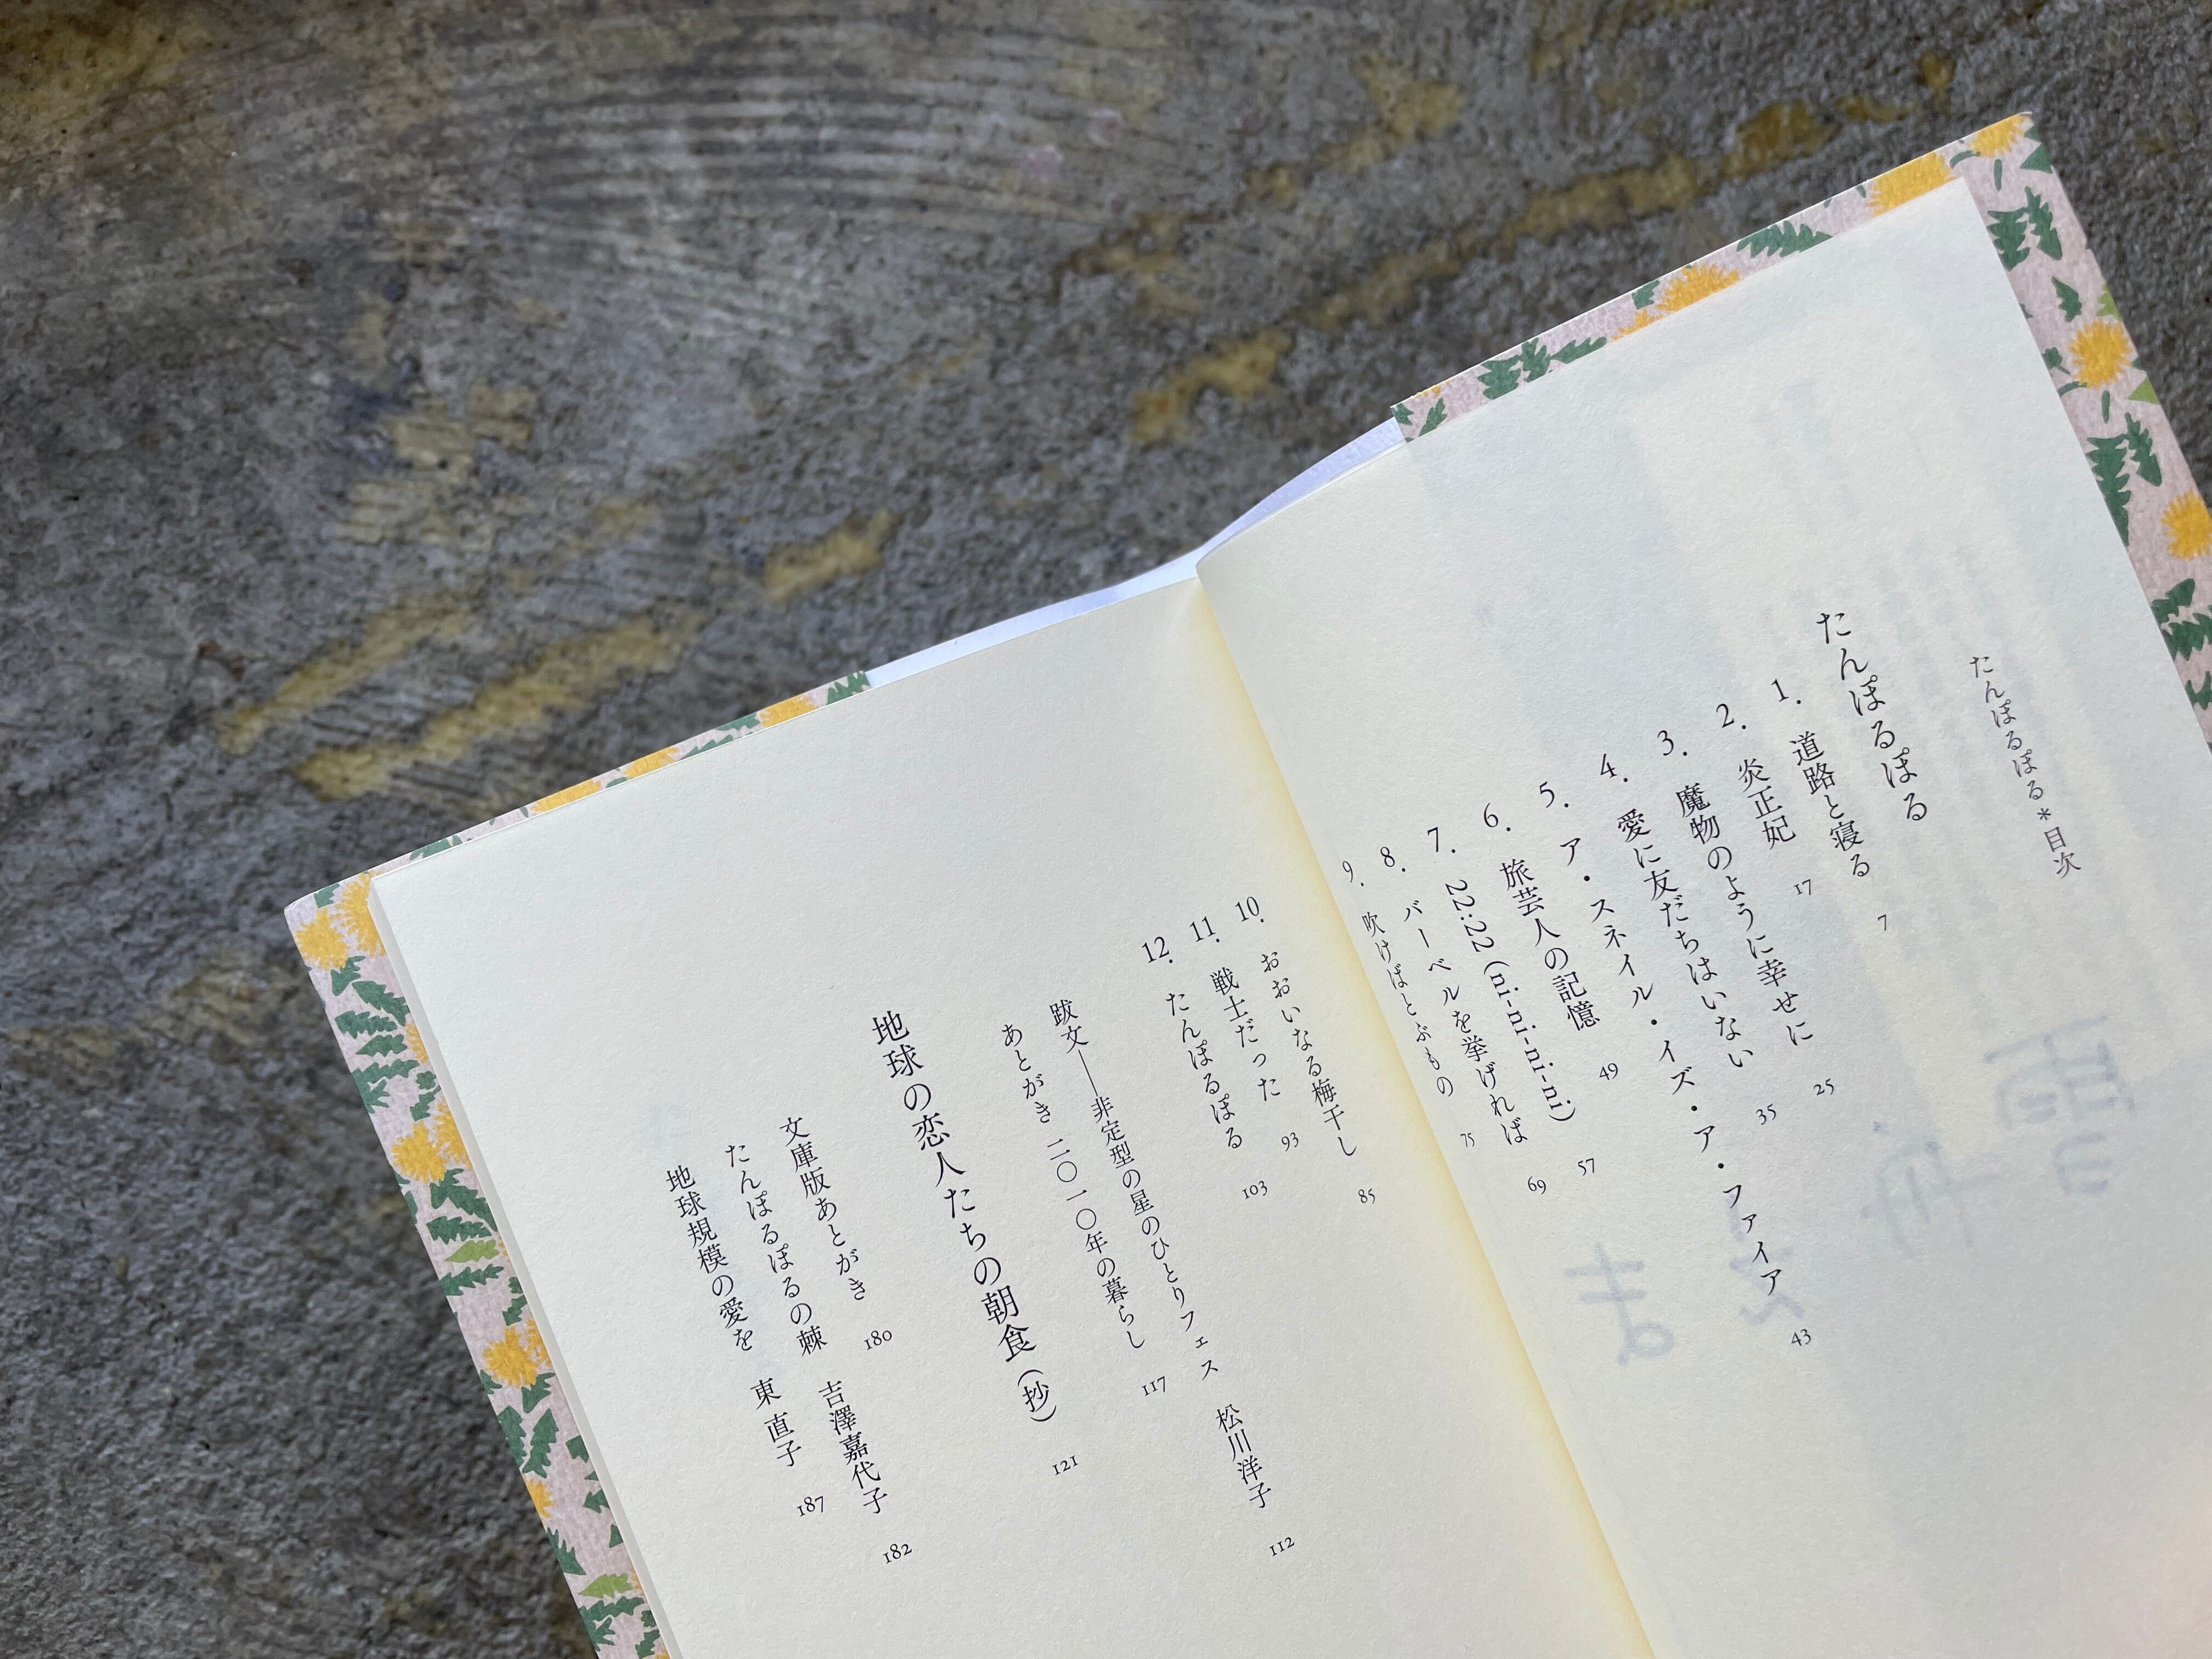 たんぽるぽる＊目次
たんぽるぽる
1. 道路と寝る 7
2. 炎正妃 17
3. 魔物のように幸せに 25
4. 愛に友だちはいない 35
5. ア・スネイル・イズ・ア・ファイア 43
6. 旅芸人の記憶 49
7. 22:22 (ni-ni-ni-ni) 57
8. バーベルを挙げれば 69
9. 吹けばとぶもの 75
10. おおいなる梅干し 85
11. 戦士だった 93
12. たんぽるぽる 103
跋文――非定型の星のひとりフェス 松川洋子 112
あとがき 二〇一〇年の暮らし 117
地球の恋人たちの朝食（抄） 121
文庫版あとがき 180
たんぽるぽるの棘 吉澤嘉代子 182
地球規模の愛を 東 直子 187